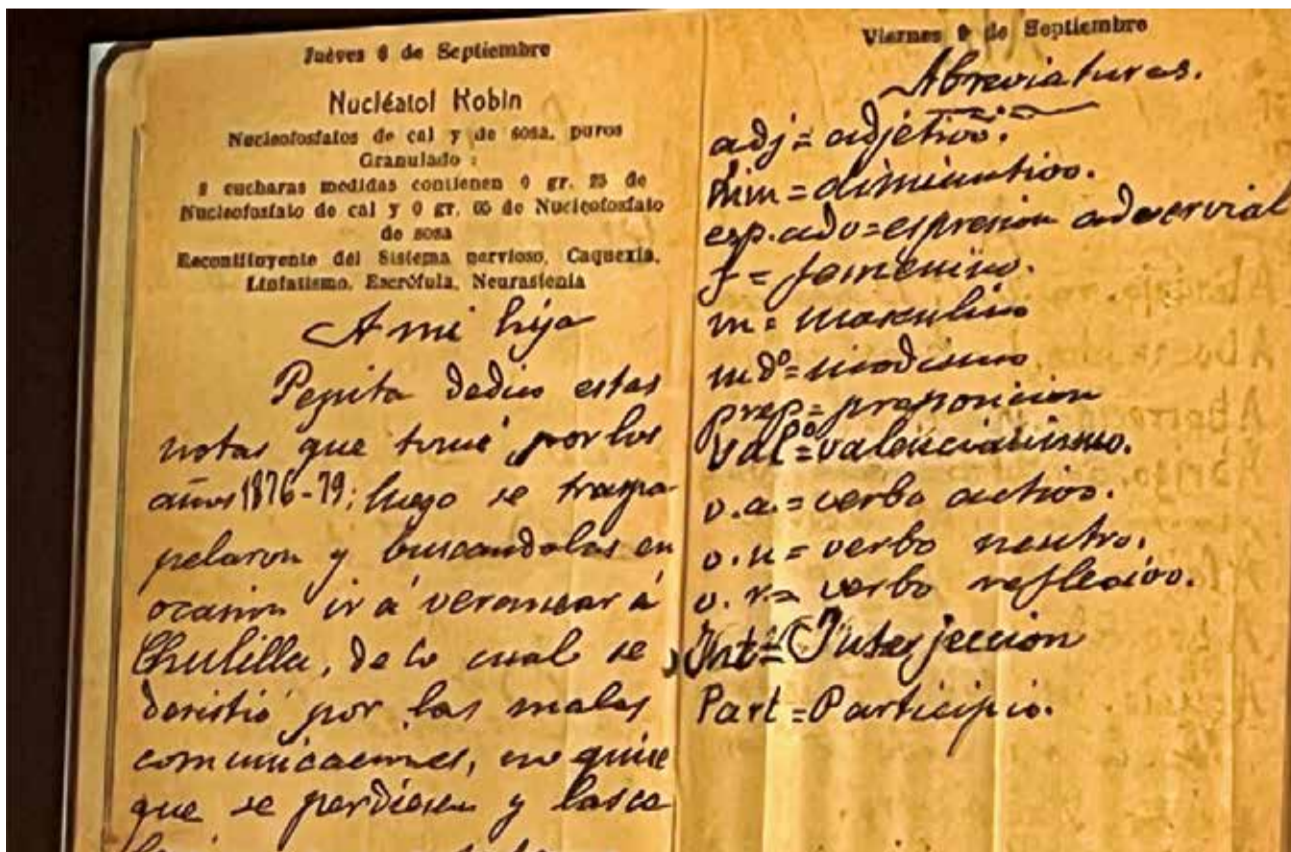 Juéves 6 de Septiembre
Nucléatol Robin
Nucleofosfatos de cal y de sosa, puros
Granulado :
2 cucharas medidas contienen 0 gr. 25 de
Nucleofosfato de cal y 0 gr. 05 de Nucleofosfato
de sosa
Reconstituyente del Sistema nervioso, Caquexia,
Linfatismo, Escrófula, Neurastenia
A mi hija
Pepita dedico estas
notas que tomé por los
años 1876-79; luego se traspa
pelaron y buscandolas en
ocasion ir á veranear á
Chulilla, de lo cual se
desistió por las malas
comunicaciones, no quise
que se perdiesen y las co
Viernes de Septiembre
Abreviaturas.
adj = adjetivo.
dim = diminutivo.
esp. adv = espresion advervial
f = femenino.
m = masculino
mdº = modismo
prep = preposicion
Valº = valencianismo.
v.a. = verbo activo.
v.n = verbo neutro.
v.r. = verbo reflecsivo.
Int = Interjeccion
Part = Participio.